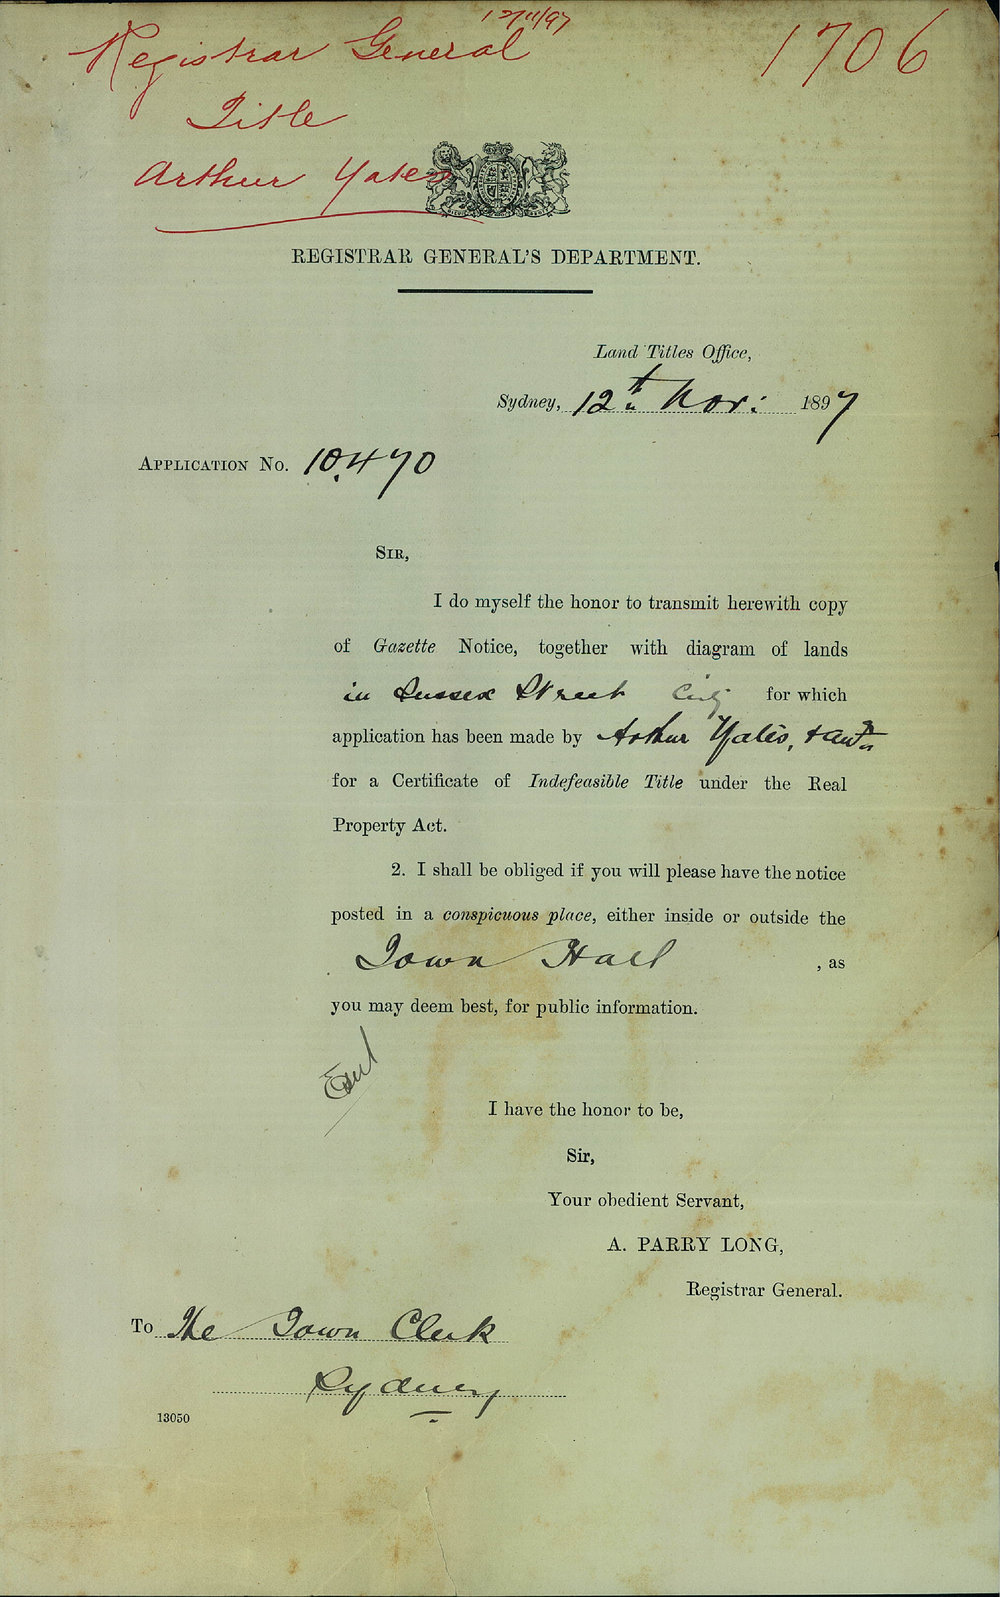 12/11/97
Registrar General
1706
Title
Arthur Yates
REGISTRAR GENERAL'S DEPARTMENT.
Land Titles Office,
Sydney, 12th Nov: 1897
APPLICATION No. 10,470
SIR,
I do myself the honor to transmit herewith copy
of Gazette Notice, together with diagram of lands
in Sussex Street City for which
application has been made by Arthur Yates, & anr
for a Certificate of Indefeasible Title under the Real
Property Act.
2. I shall be obliged if you will please have the notice
posted in a conspicuous place, either inside or outside the
Town Hall , as
you may deem best, for public information.
I have the honor to be,
Sir,
Your obedient Servant,
A. PARRY LONG,
Registrar General.
To The Town Clerk
Sydney
13050